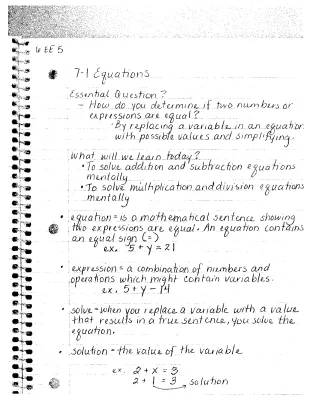 6 EE 5
7-1 Equations
Essential Question?
- How do you determine if two numbers or
expressions are equal?
· By replacing a variable in an equation
with possible values and simplifying.
What will we learn today?
• To solve addition and subtraction equations
mentally
• To solve multiplication and division equations
mentally
• equation = is a mathematical sentence showing
two expressions are equal. An equation contains
an equal sign (=)
ex. 5 + y = 21
• expression = a combination of numbers and
operations which might contain variables.
ex. 5 + y - 14
• solve = when you replace a variable with a value
that results in a true sentence, you solve the
equation.
• solution = the value of the variable
ex. 2 + x = 3
2 + 1 = 3 solution